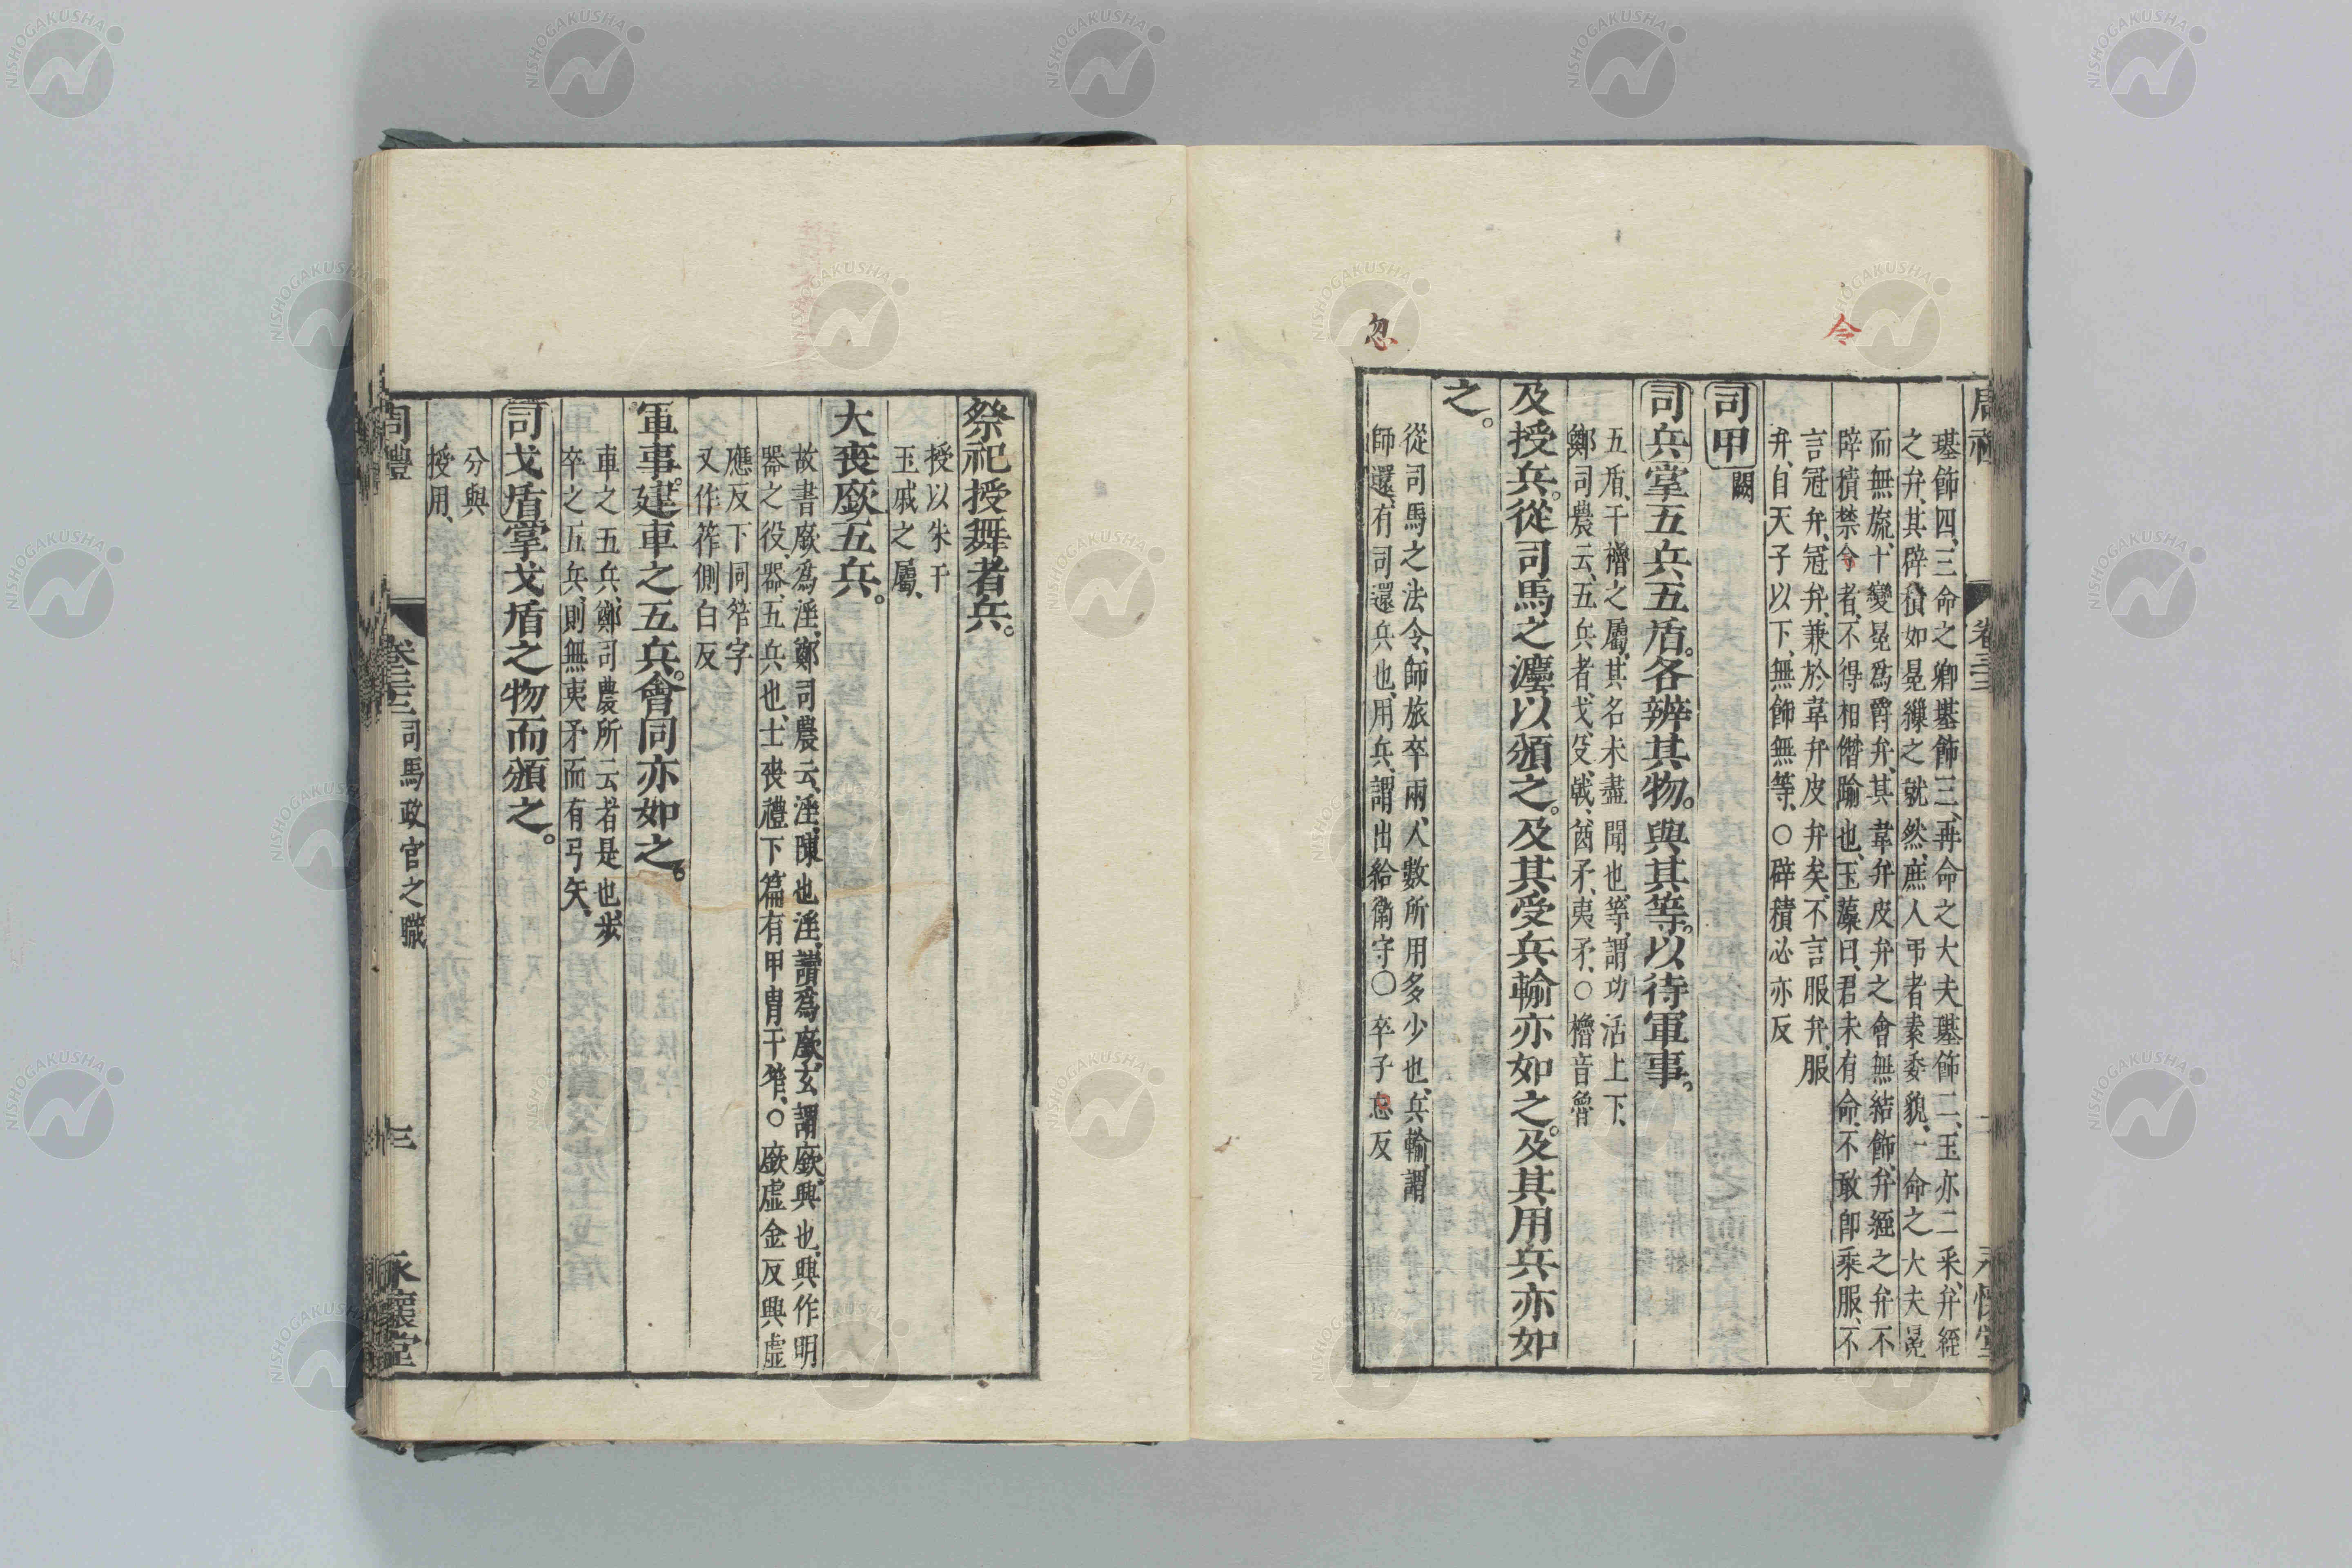 忽
令
周禮
卷三十二
永懷堂
璂飾四、三命之卿璂飾三、再命之大夫璂飾二、玉亦二采、弁絰
之弁、其辟積如冕繅之就然、庶人弔者素委貌、一命之大夫冕
而無旒、士變冕爲爵弁、其韋弁皮弁之會無結飾、弁絰之弁不
辟積禁令者、不得相僭踰也、玉藻曰、君未有命、不敢卽乘服、不
言冠弁、冠弁、兼於韋弁皮弁矣、不言服弁、服
弁、自天子以下、無飾無等、○辟積必亦反
司甲闕
司兵掌五兵五盾。各辨其物。與其等。以待軍事。
五盾、干櫓之屬、其名未盡聞也、等、謂功沽上下、
鄭司農云、五兵者、戈、殳、戟、酋矛、夷矛、○櫓音魯
及授兵。從司馬之灋以頒之。及其受兵輸亦如之。及其用兵亦如
之。
從司馬之法令、師旅卒兩、人數所用多少也、兵輸、謂
師還、有司還兵也、用兵、謂出給衛守、○卒子忽反
祭祀授舞者兵。
授以朱干
玉戚之屬、
大喪廞五兵。
故書廞爲淫、鄭司農云、淫、陳也、淫、讀爲廞、玄謂廞、興也、興作明
器之役器、五兵也、士喪禮下篇有甲冑干笮、○廞虛金反興虛
應反下同笮字
又作筰側白反
軍事。建車之五兵。會同亦如之。
車之五兵、鄭司農所云者是也、步
卒之五兵、則無夷矛而有弓矢、
司戈盾掌戈盾之物而頒之。
分與
授用、
周禮
卷三十二
司馬政官之職
三
永懷堂